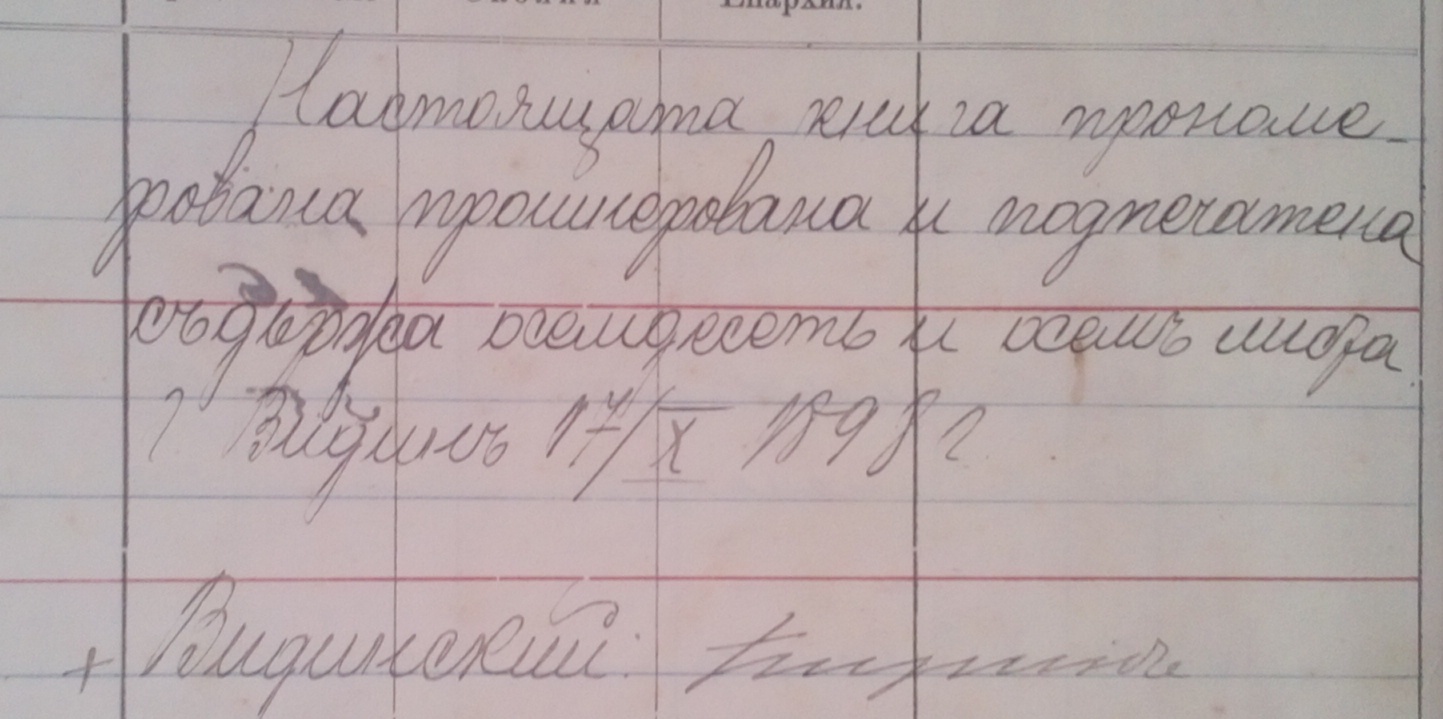 Епархия.
Настоящата книга прономе-
рована прошнерована и подпечатена
съдържа осемдесеть и осемь листа.
г. Видинъ 17/X 1898 г.
+ Видинский